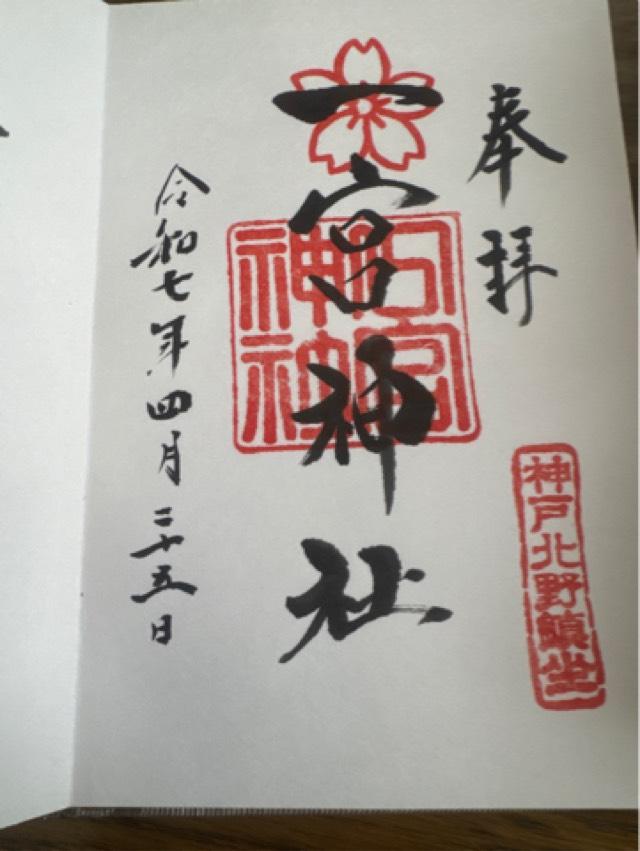 奉拝
神戸北野鎮坐
一宮神社
令和七年四月二十五日